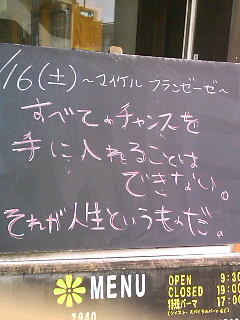 /16(土)~マイケル フランゼーゼ~
すべてのチャンスを
手に入れることは
できない。
それが人生というものだ。
MENU
OPEN 9:30
CLOSED 19:00
特殊パーマ 17:00